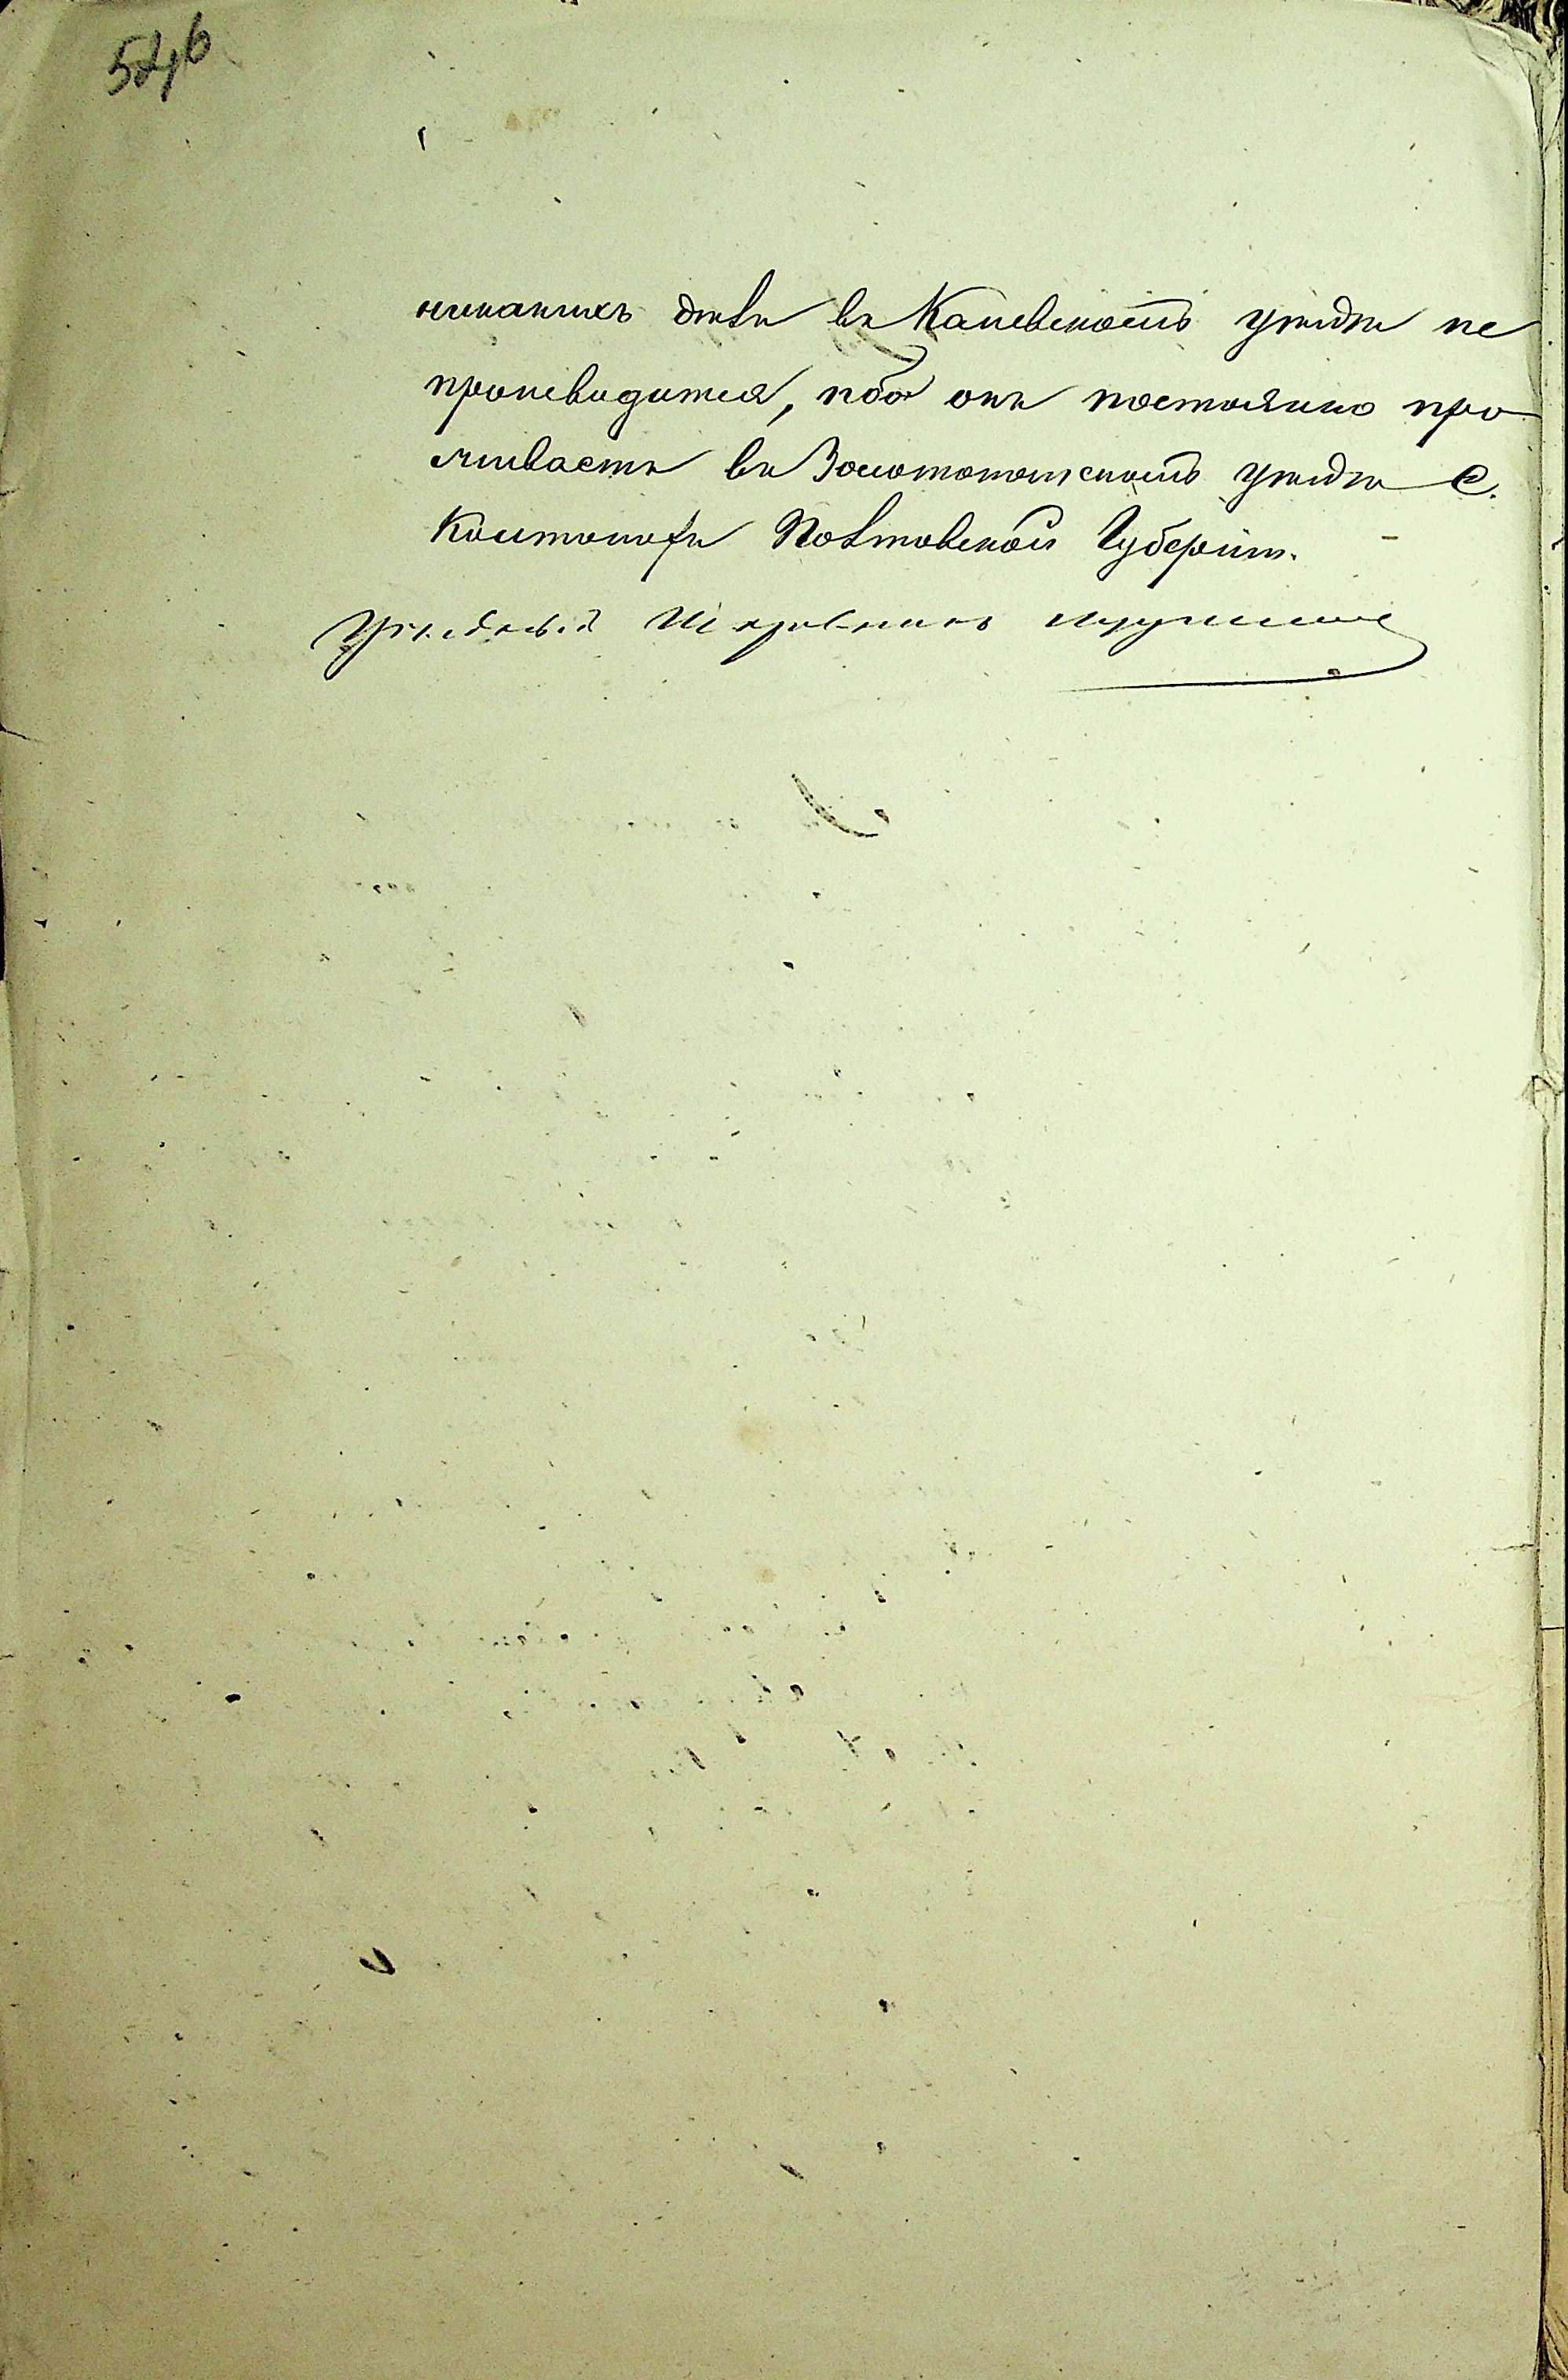 никакихъ дѣлъ въ Каневскомъ уѣздѣ не
производится, ибо онъ постоянно про
живаетъ въ Золотоношскомъ уѣздѣ С.
Полтавской Губерніи.
Уѣздный Исправникъ